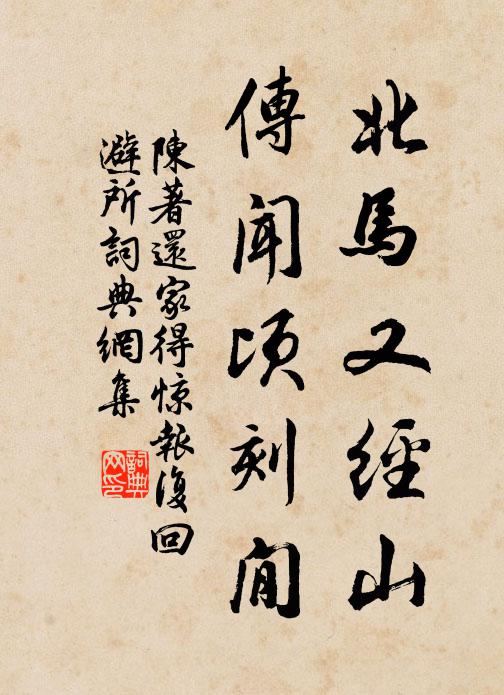 北馬又經山
傳聞頃刻間
陳著還家得惊報復回
避所詞典網集
詞典
网印